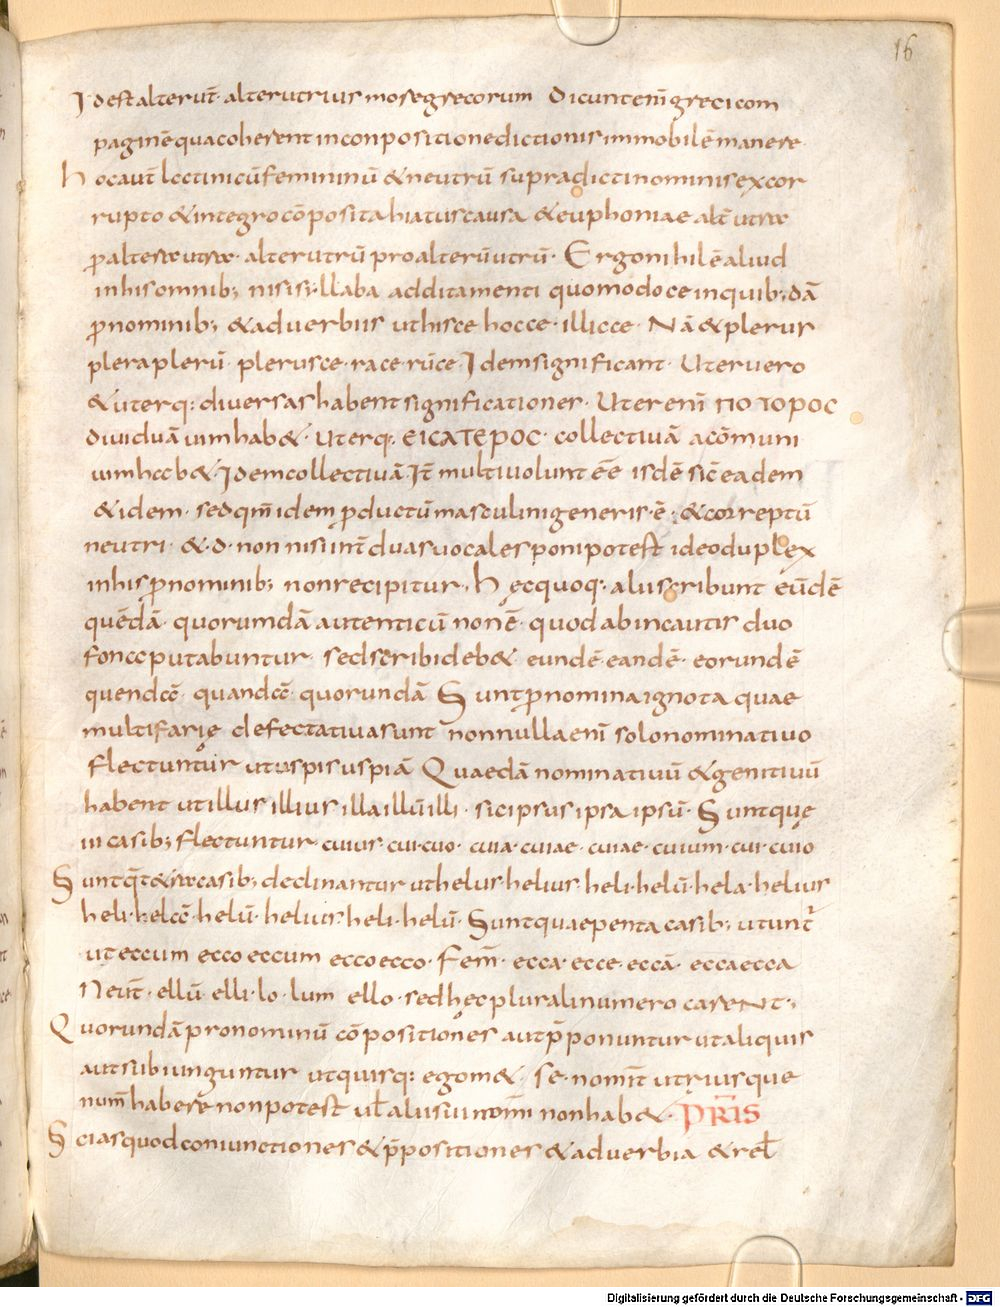 16
I dest alterut̄ · alterutrius more grecorum Dicunt enī greci com
paginē qua coherent in conpositione dictionis immobilē manere
hoc aut̄ latinicū femininū & neutrū supradicti nominis ex cor
rupto & integro cōposita hiatus causa & euphoniae alt̄ utra
ꝓ altera utra · alterutrū pro alterū utrū · Ergo nihil ē aliud
in his omnib; nisi sillaba additamenti quomodo ce in quib;dā
ꝓnominib; & aduerbiis ut hisce hocce · illicce · Nā & plerus
plera plerū · plerusce · race · rūce · Idem significant · Uter uero
& uterq: diuersas habent significationes · Uter enī ΠΟΤΟΡΟC
diuiduā uim hab& · Uterq: ΕΙCΑΤΕΡΟC · collectiuā a cōmuni
uim hab& · Idem collectiuā · It̄ multi uolunt eē̄ isdē sic̄ eadem
& idem · sed qm̄ idem ꝓductū masculini generis ·ē· & correptū
neutri · & ·d· non nisi int̄ duas uocales poni potest ideo duplex
in his ꝓnominib; non recipitur · Hęc quoq: alii scribunt eūdē
quēdā · quorumdā autenticū non ē · quod ab incautis duo
fona putabuntur · sed scribi deb& eundē eandē · eorundē
quendā · quandā · quorundā Sunt ꝓnomina ignota quae
multifarię defectatiua sunt nonnulla enī solo nominatiuo
flectuntur ut uspis uspiā Quaedā nominatiuū & genitiuū
habent ut illus illius illa illū illi · sic ipsus ipsa ipsū · Sunt que
iii casib; flectuntur · cuius · cui · cuo · cuia · cuiae · cuiae · cuium · cui · cuio
Sunt q̄ t&ra casib; declinantur ut helus · helius · heli · helū · hela · helius
heli · helā · helū · helius · heli · helū · Sunt quae penta casib; utunt᷑
ut eccum ecco eccum ecco ecco · Fem̄ · ecca · ecce · eccā · ecca ecca
Neut̄ · ellū · elli · lo · lum ello · sed hęc plurali numero carent;
Quorundā pronominū cōpositiones aut p̄ponuntur ut aliquis
aut subiunguntur ut quisq: egom& · se · nomīt utriusque
num̄ habere non potest ul̄ alius uim om̄i non hab& · PR̄IS
Scias quod coniunctiones & p̄positiones & aduerbia & rel̄
Digitalisierung gefördert durch die Deutsche Forschungsgemeinschaft - DFG